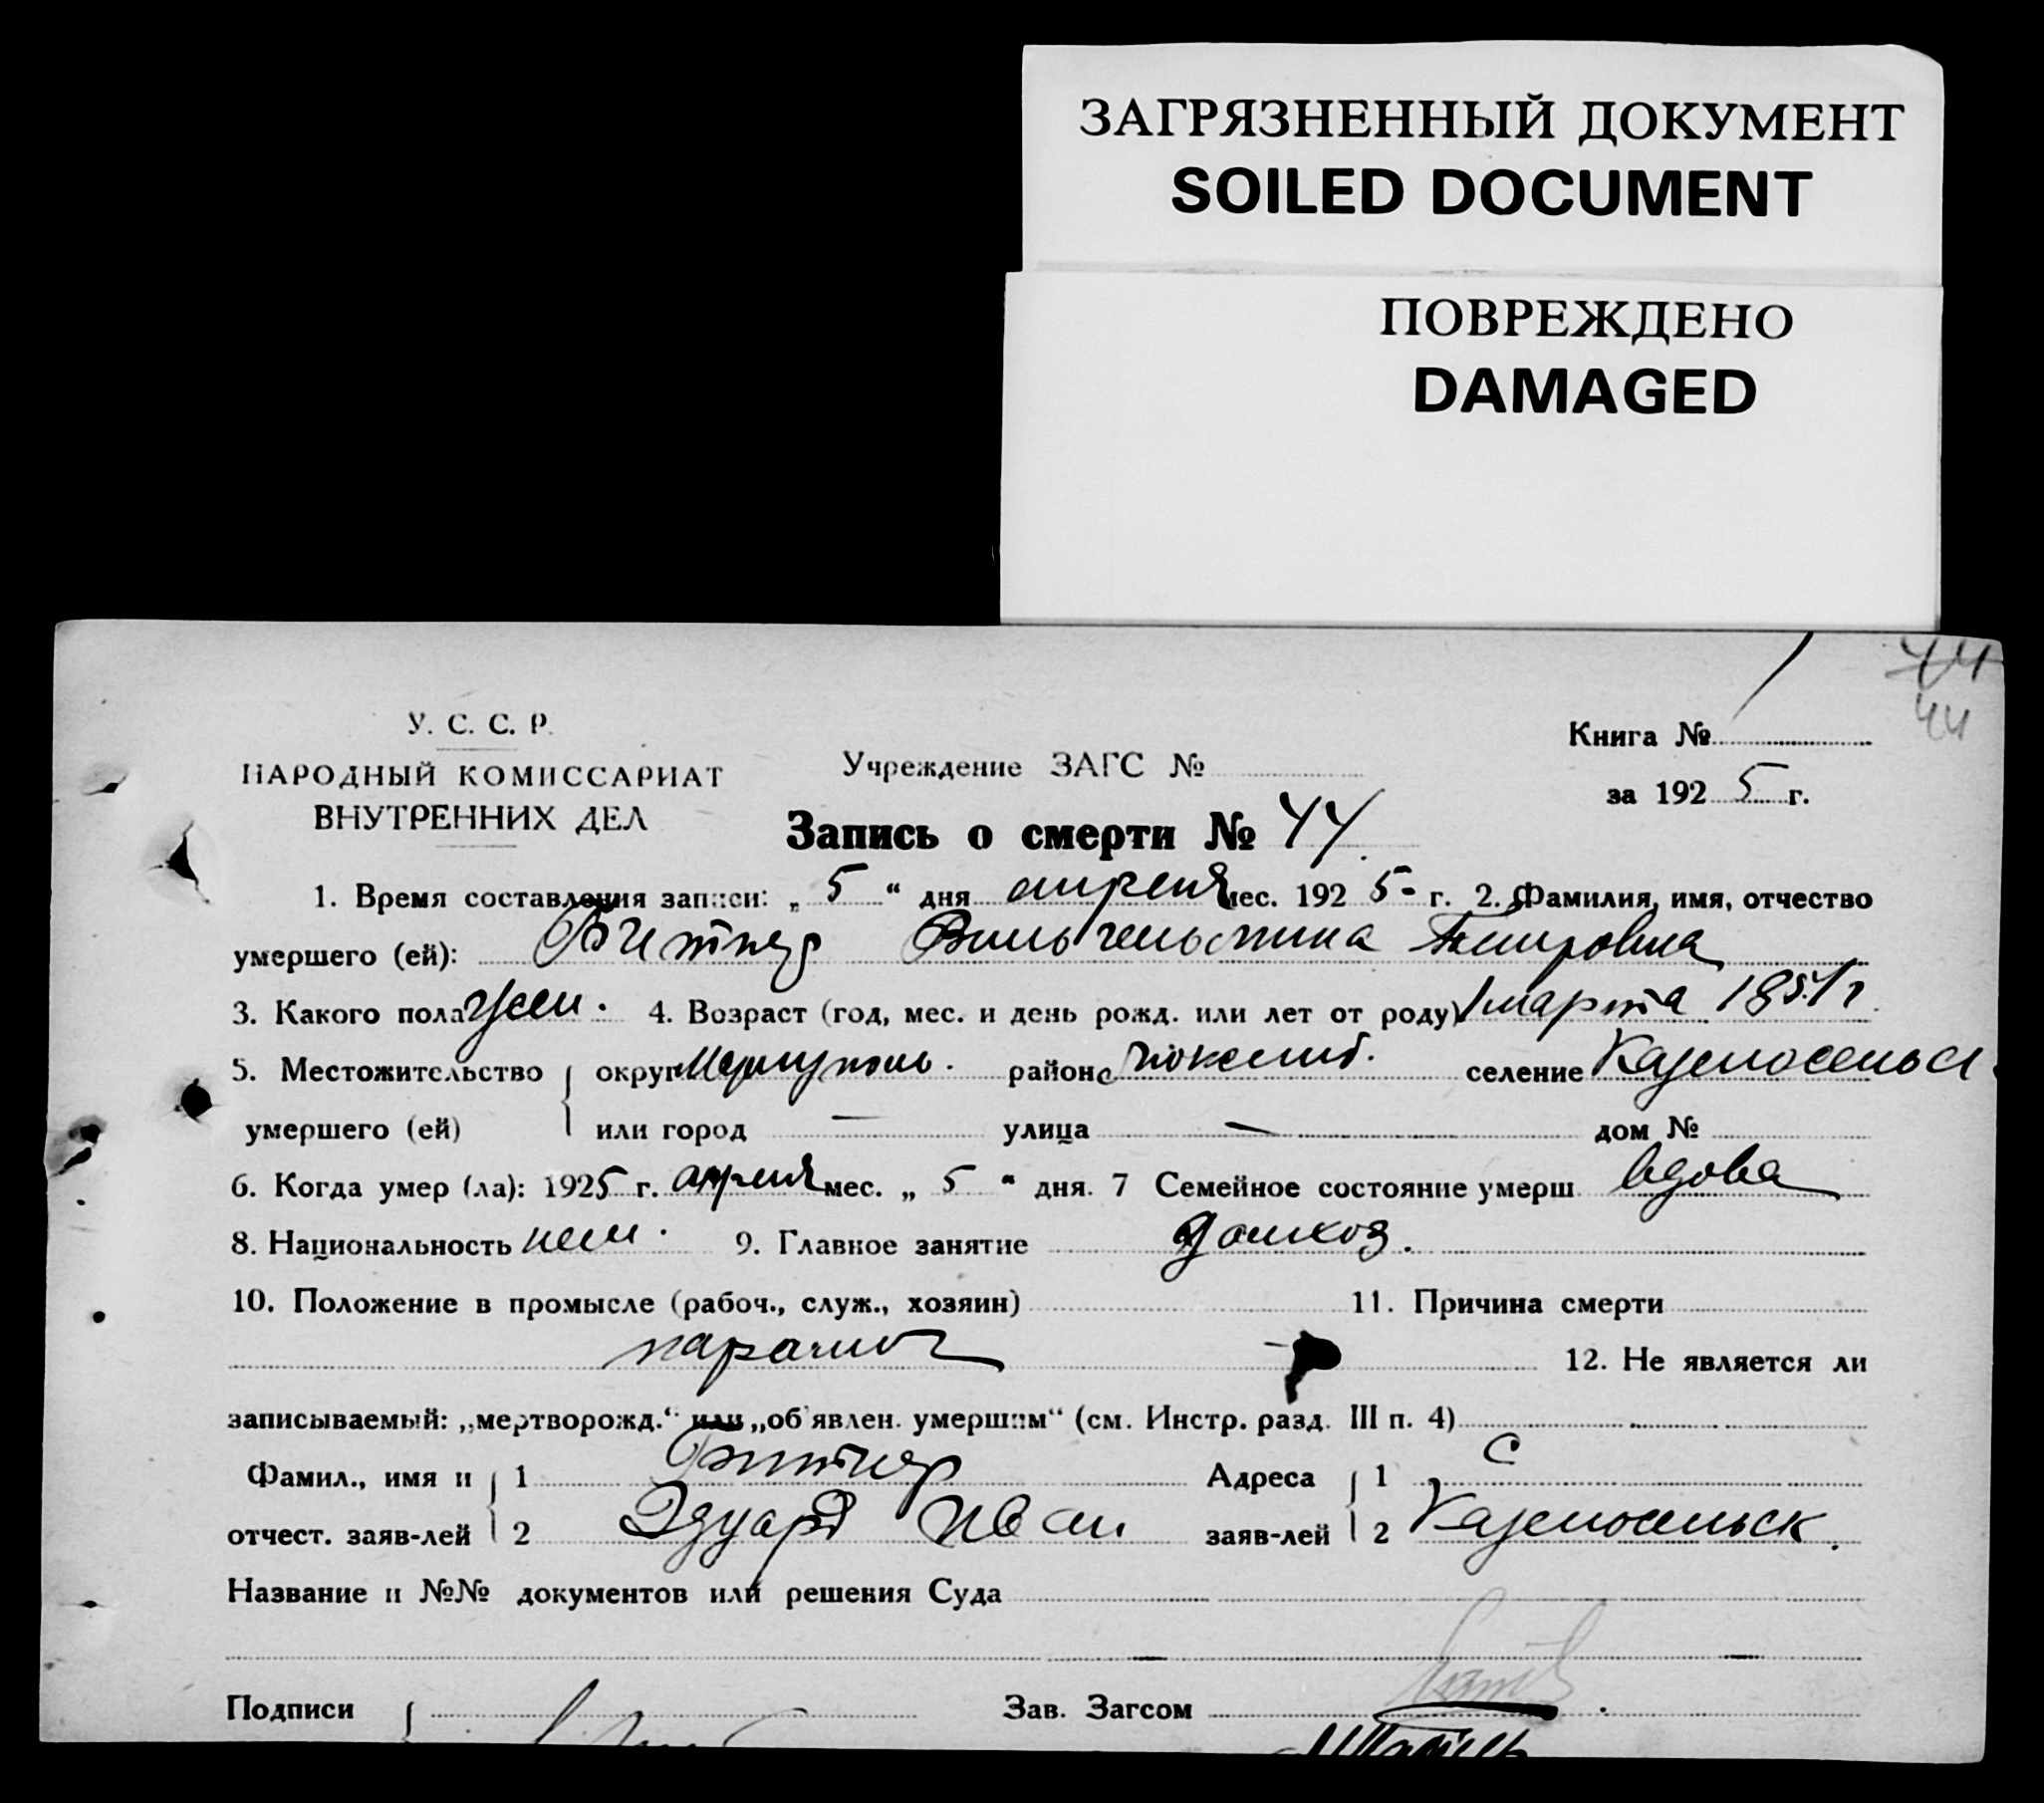 ЗАГРЯЗНЕННЫЙ ДОКУМЕНТ
SOILED DOCUMENT
ПОВРЕЖДЕНО
DAMAGED
44
44
У. С. С. Р.
Книга № 1
НАРОДНЫЙ КОМИССАРИАТ
ВНУТРЕННИХ ДЕЛ
Учреждение ЗАГС №
за 1925 г.
Запись о смерти № 44.
1. Время составления записи: „ 5 “ дня апреля мес. 1925 г. 2. Фамилия, имя, отчество
умершего (ей): Битнер Вильгельмина
3. Какого пола жен. 4. Возраст (год, мес. и день рожд. или лет от роду) 1 марта 1851 г.
5. Местожительство округ Мариуполь. район селение
умершего (ей) или город — улица — дом №
6. Когда умер (ла): 1925 г. апреля мес. „ 5 “ дня. 7 Семейное состояние умерш. вдова
8. Национальность нем. 9. Главное занятие домхоз.
10. Положение в промысле (рабоч., служ., хозяин) 11. Причина смерти
паралич
12. Не является ли
записываемый: „мертворожд.“ или „об'явлен. умершим“ (см. Инстр. разд. III п. 4)
Фамил., имя и 1 Битнер Адреса 1 С
отчест. заяв-лей 2 Эдуард Иван заяв-лей 2
Название и №№ документов или решения Суда
Подписи Зав. Загсом